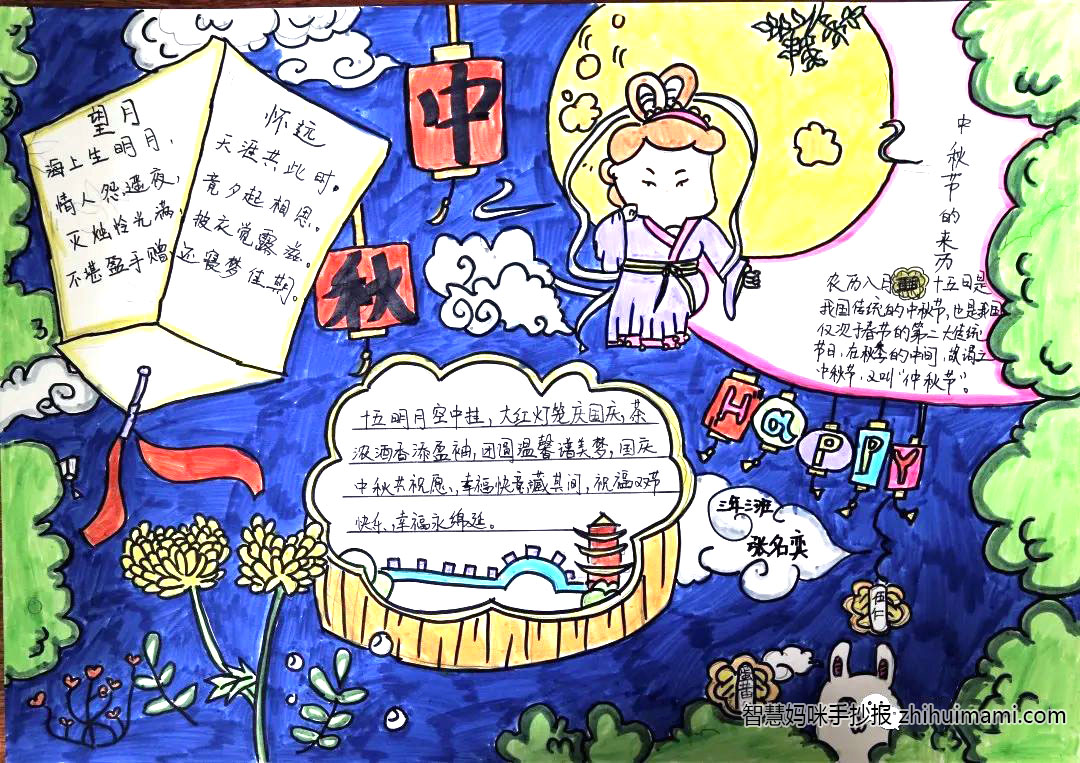 望月
海上生明月,
情人怨遥夜,
灭烛怜光满,
不堪盈手赠,
怀远
天涯共此时。
竟夕起相思。
披衣觉露滋。
还寝梦佳期。
中
秋
中秋节的来历
农历八月十五日是
我国传统的中秋节,也是我国
仅次于春节的第二大传统
节日,在秋季的中间,故谓之
中秋节,又叫“仲秋节”。
HaPPY
十五明月空中挂,大红灯笼庆国庆,茶
浓酒香添盈袖,团圆温馨谱美梦,国庆
中秋共祝愿、幸福快意藏其间,祝福双节
快乐,幸福永绵延。
三年三班
张名奕
伍仁
智慧妈咪手抄报 zhihuimami.com